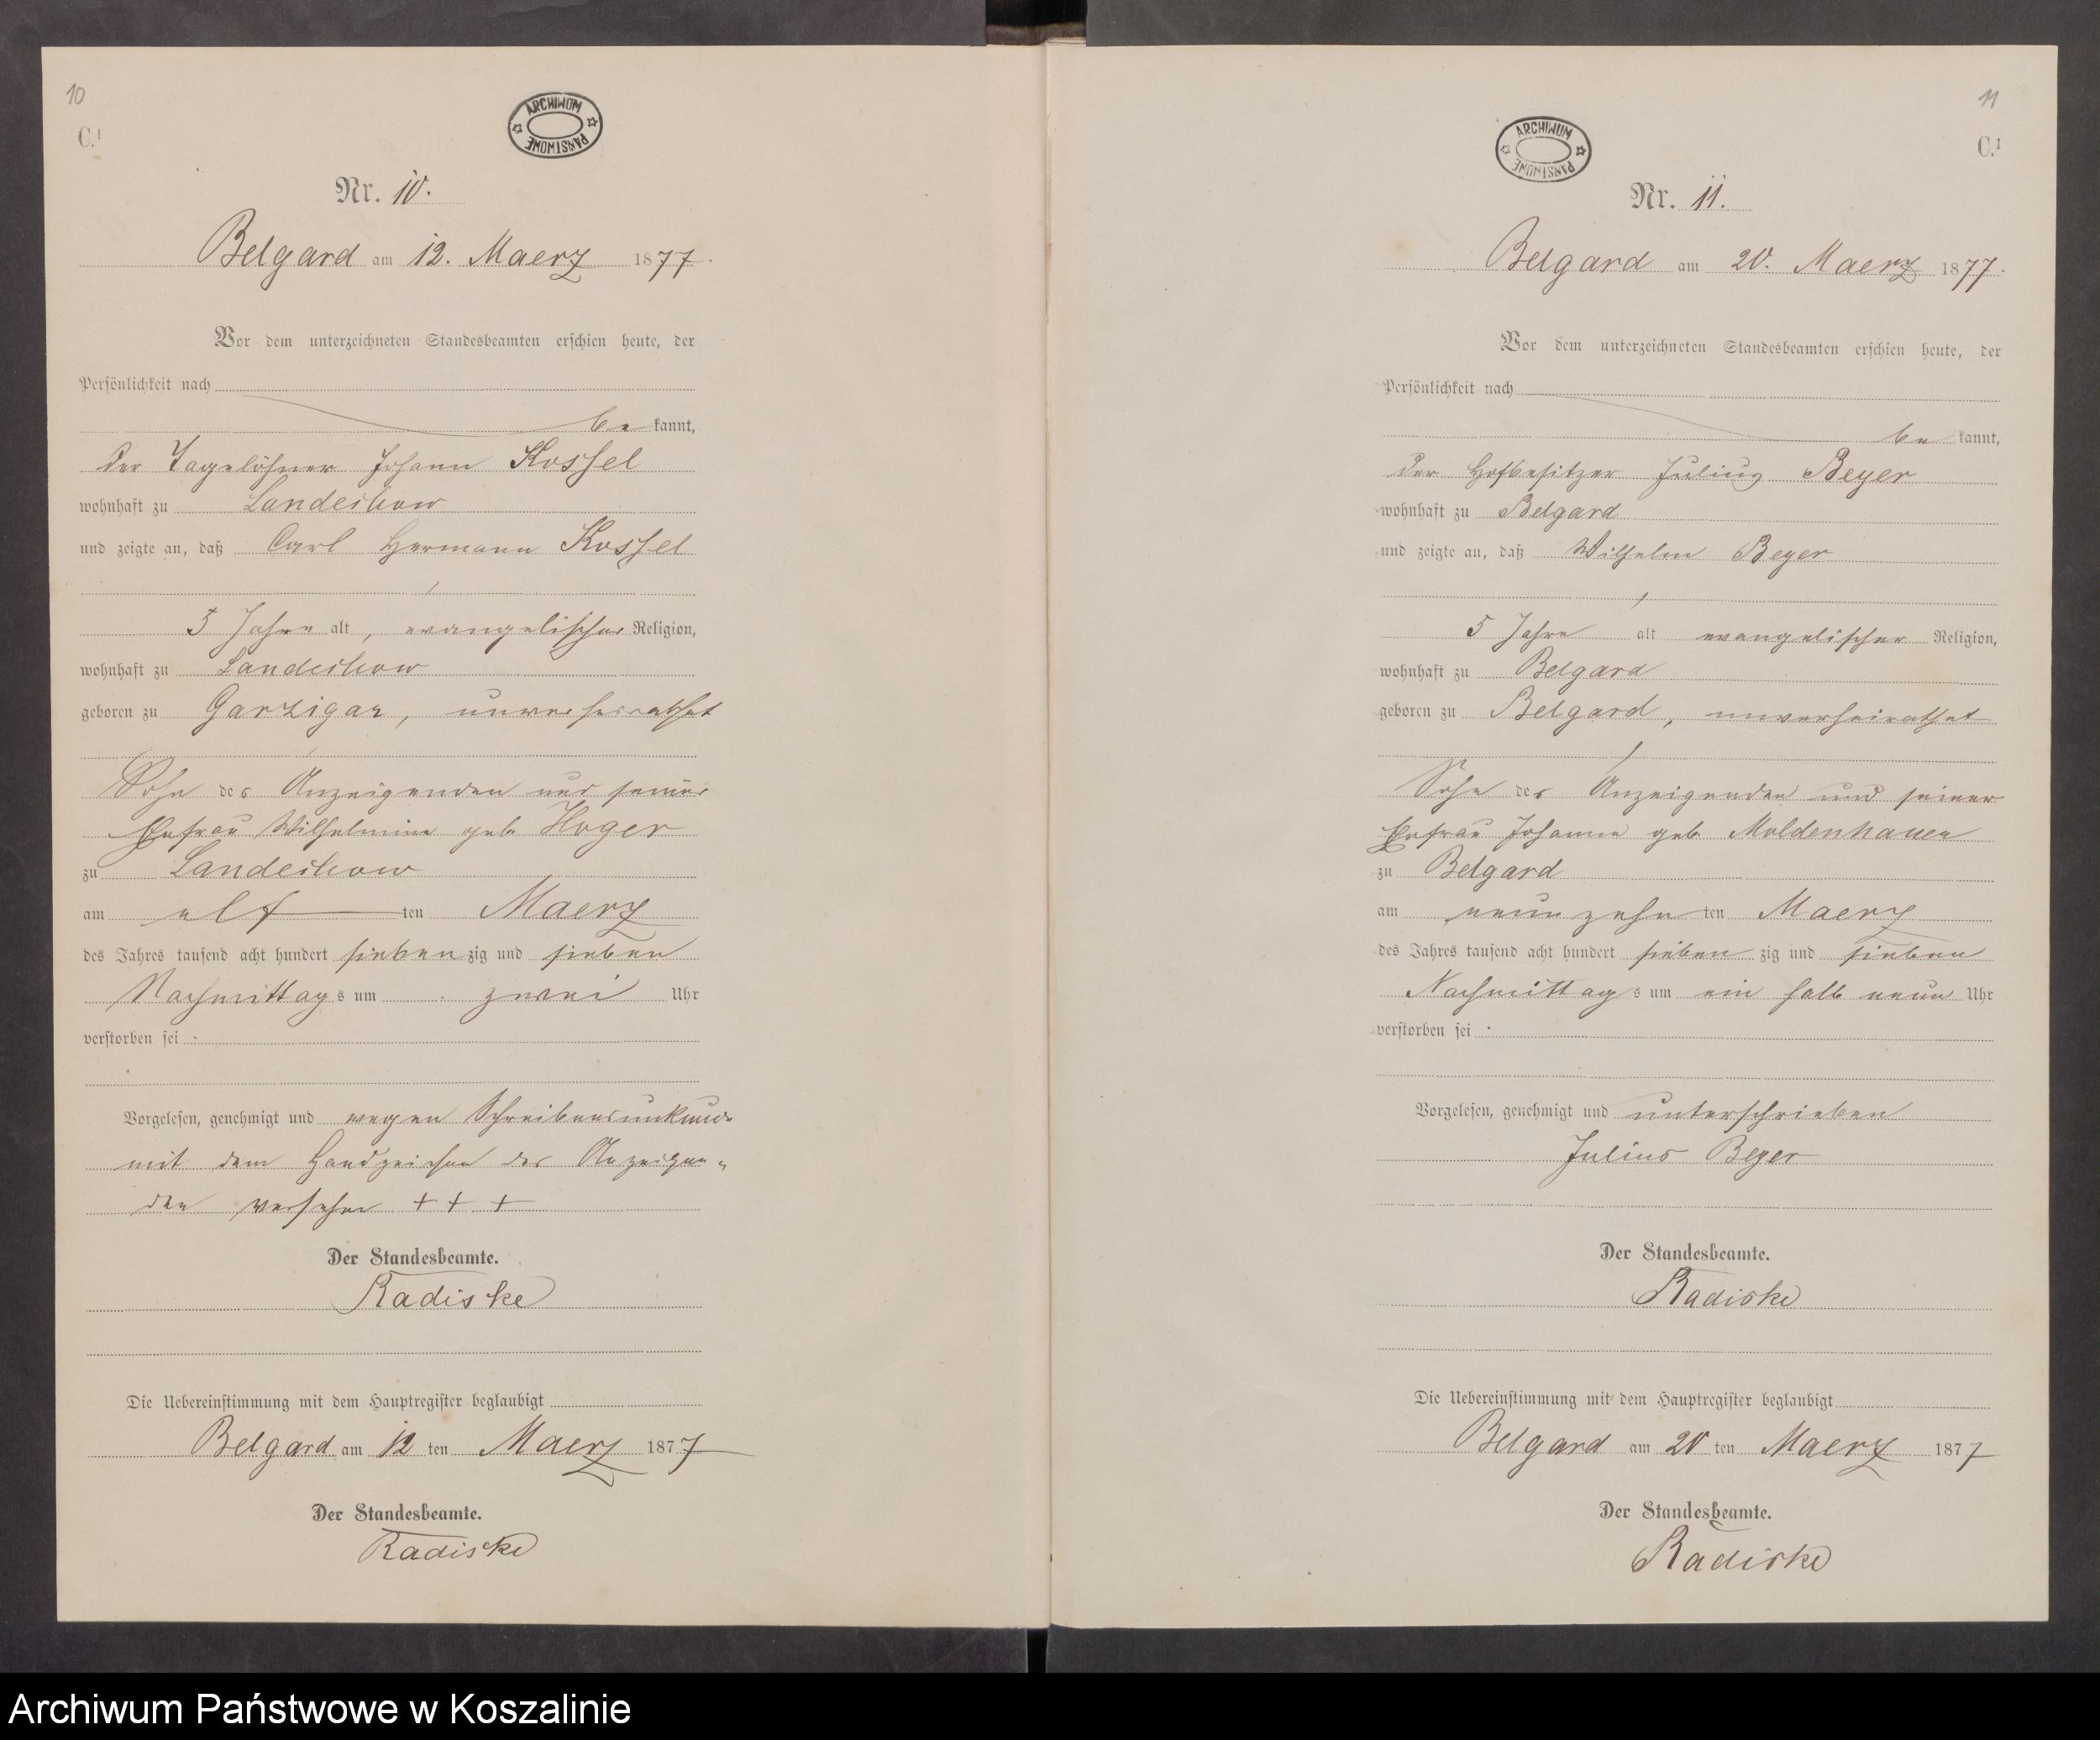 10
C.¹
ARCHIWUM PAŃSTWOWE
Nr. 10.
Belgard am 12. Maerz 1877.
Vor dem unterzeichneten Standesbeamten erschien heute, der
Persönlichkeit nach
be kannt,
der Tagelöhner Johann Kossel
wohnhaft zu Landechow
und zeigte an, daß Carl Hermann Kossel
5 Jahre alt, evangelischer Religion,
wohnhaft zu Landechow
geboren zu Garzigar, unverheirathet
Sohn des Anzeigenden und seiner
Ehefrau Wilhelmine geb. Hoger
zu Landechow
am elf ten Maerz
des Jahres tausend acht hundert sieben zig und sieben
Nachmittag s um zwei Uhr
verstorben sei.
Vorgelesen, genehmigt und wegen Schreibensunkunde
mit dem Handzeichen des Anzeigen„
den versehen + + +
Der Standesbeamte.
Radiske
Die Uebereinstimmung mit dem Hauptregister beglaubigt
Belgard am 12 ten Maerz 1877
Der Standesbeamte.
Radiske
11
C.¹
ARCHIWUM PAŃSTWOWE
Nr. 11.
Belgard am 20. Maerz 1877.
Vor dem unterzeichneten Standesbeamten erschien heute, der
Persönlichkeit nach
be kannt,
der Hofbesitzer Julius Beyer
wohnhaft zu Belgard
und zeigte an, daß Wilhelm Beyer
5 Jahre alt evangelischer Religion,
wohnhaft zu Belgard
geboren zu Belgard, unverheirathet
Sohn des Anzeigenden und seiner
Ehefrau Johanne geb. Moldenhauer
zu Belgard
am neunzehn ten Maerz
des Jahres tausend acht hundert sieben zig und sieben
Nachmittag s um ein halb neun Uhr
verstorben sei.
Vorgelesen, genehmigt und unterschrieben
Julius Beyer
Der Standesbeamte.
Radiske
Die Uebereinstimmung mit dem Hauptregister beglaubigt
Belgard am 20 ten Maerz 1877
Der Standesbeamte.
Radiske
Archiwum Państwowe w Koszalinie